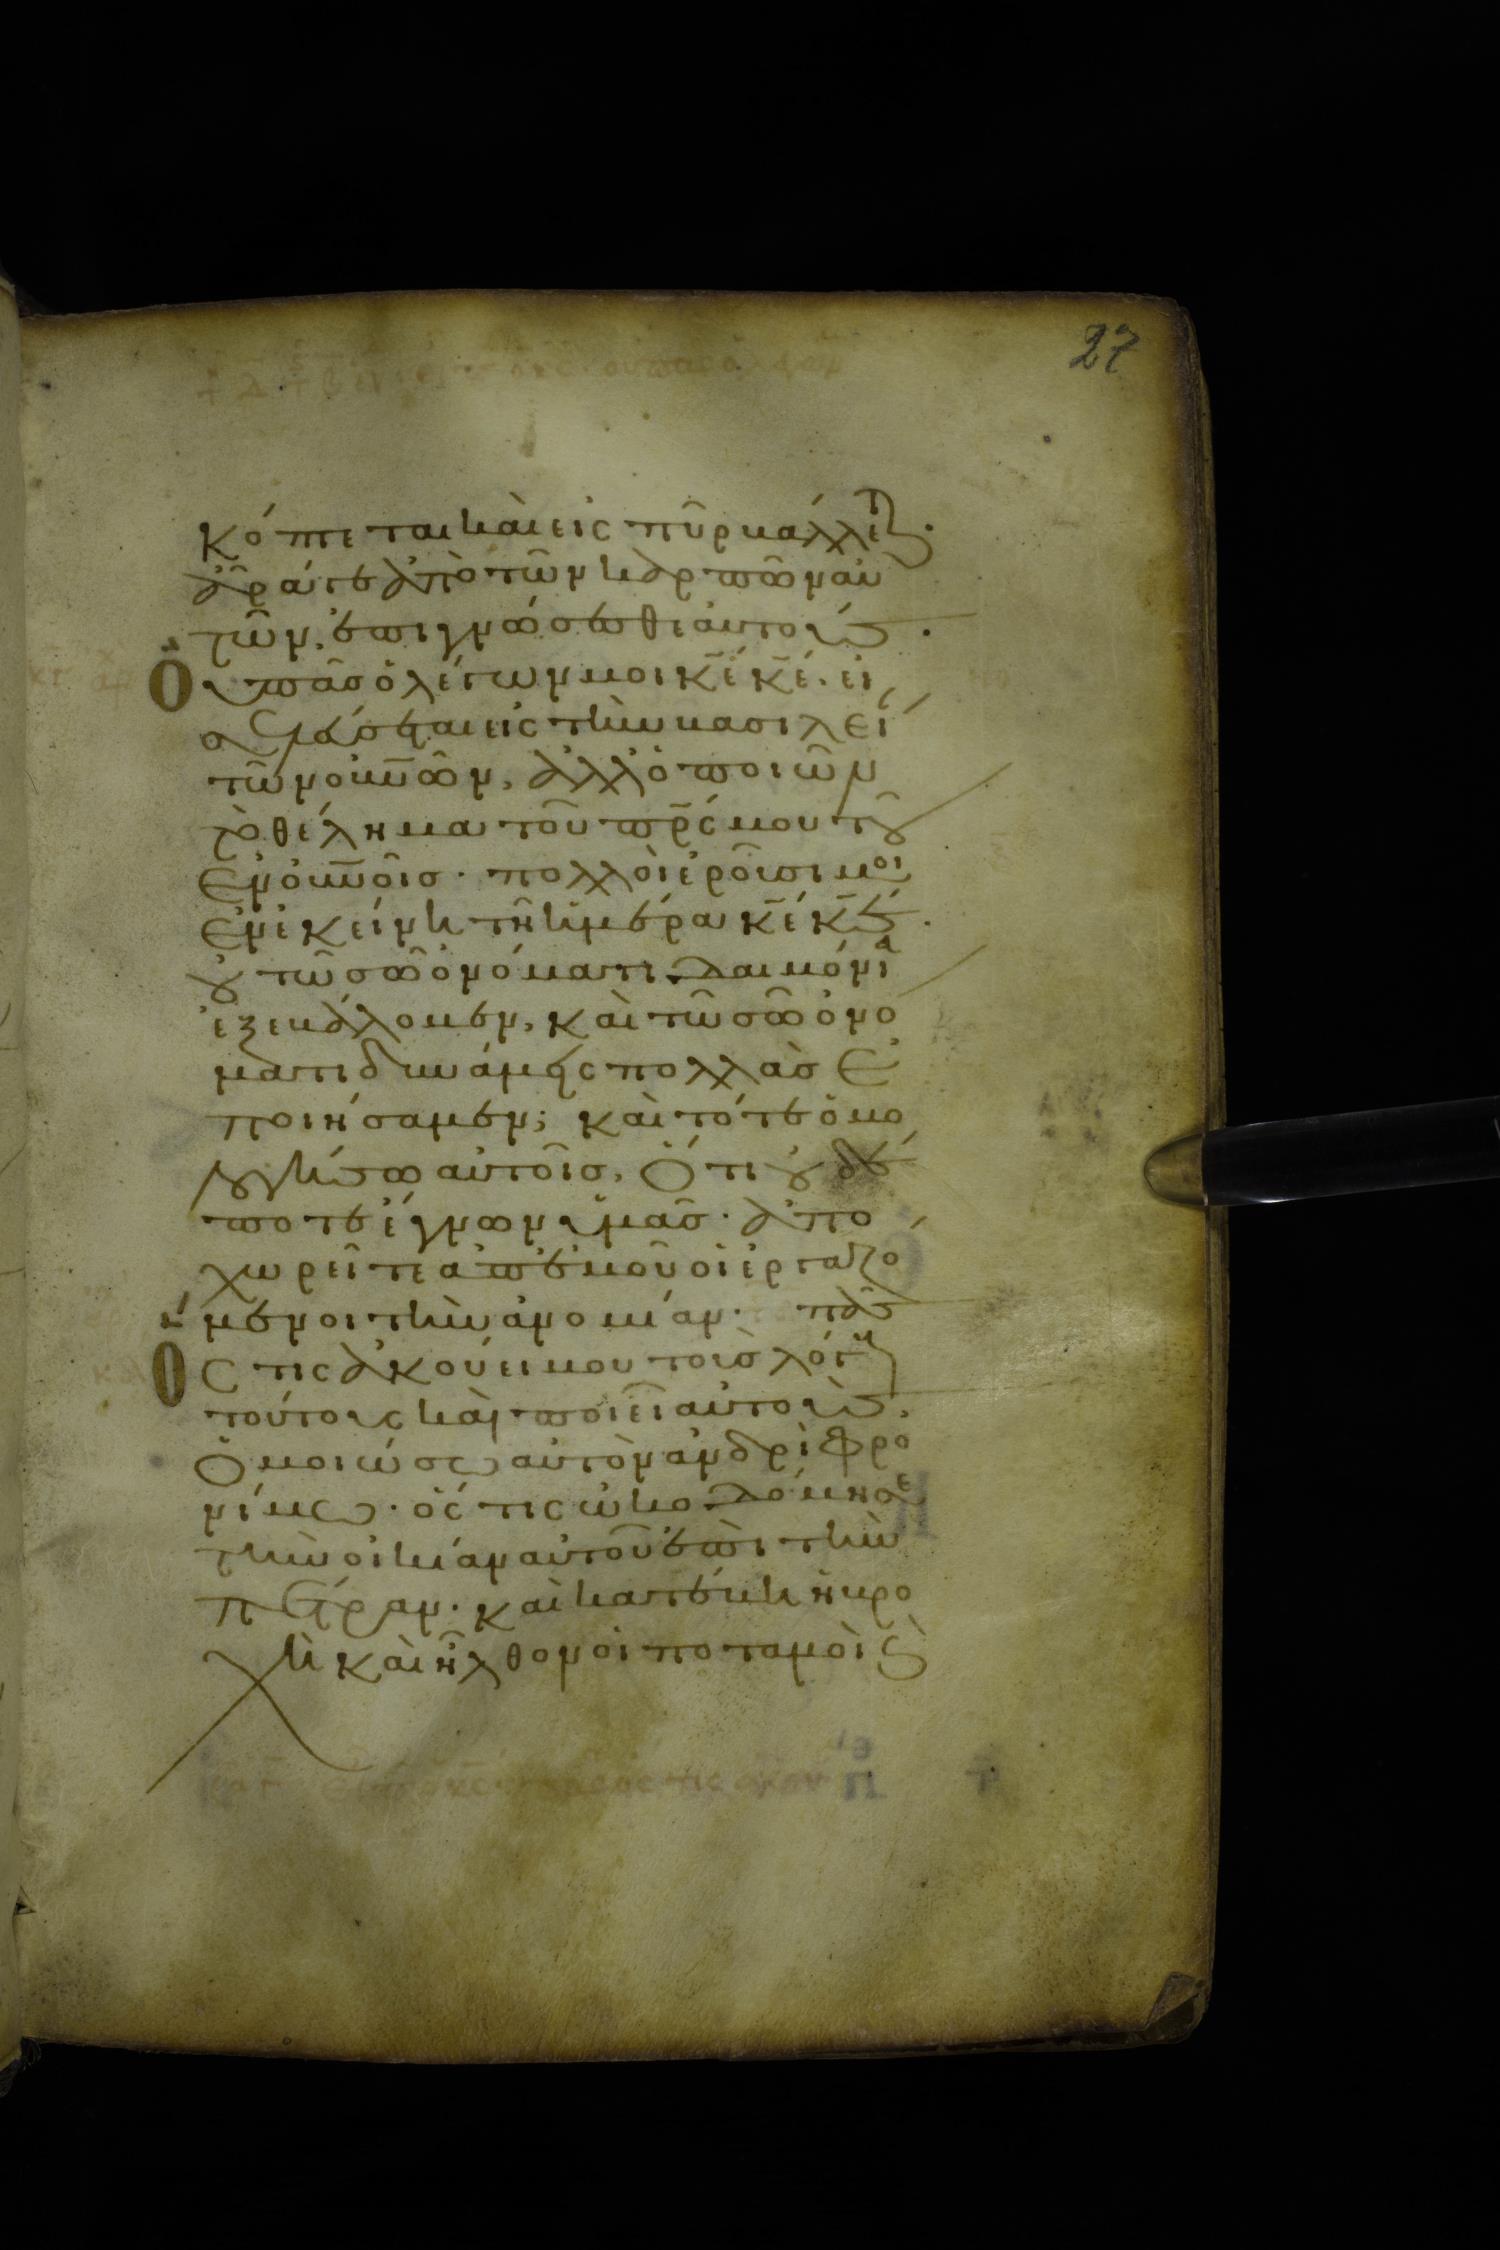 27
κόπτεται καὶ εἰς πῦρ βάλλεται.
ἄρα γε ἀπὸ τῶν καρπῶν αὐ
τῶν, ἐπιγνώσεσθε αὐτούς.
Ὀυ πᾶς ὁ λέγων μοι κ̅ε̅ κ̅ε̅. εἰ
σελεύσεται εἰς τὴν βασιλεί
τῶν οὐν̅ῶν, ἀλλ ὁ ποιῶν
τὸ θέλημα τοῦ πρ̅ς μου τοῦ
ἐν οὐν̅οῖς. πολλοὶ ἐροῦσι μοι
ἐν ἐκείνη τῆ ἡμέρα κ̅ε̅ κ̅ε̅.
οὐ τῶ σῶ ὀνόματι δαιμόνια
ἐξεβάλομεν, καὶ τῶ σῶ ὀνό
ματι δυνάμεις πολλὰς ἐ
ποιήσαμεν; καὶ τότε ὁμο
λογήσω αὐτοῖς, ὅτι οὐδέ
ποτε ἔγνων ὑμᾶς. ἀπο
χωρεῖτε ἀπ ἐμοῦ οἱ ἐργαζό
μενοι τὴν ἀνομίαν. πᾶς
Ὅς τις ἀκούει μου τοὺς λόγους
τούτους καὶ ποιεῖ αὐτούς,
ὁμοιώσω αὐτὸν ἀνδρὶ φρο
νίμω. ὅς τις ὠκοδόμησε
τὴν οἰκίαν αὐτοῦ ἐπὶ τὴν
πέτραν. καὶ κατέβη ἡ βρο
χὴ καὶ ἦλθον οἱ ποταμοὶ καὶ